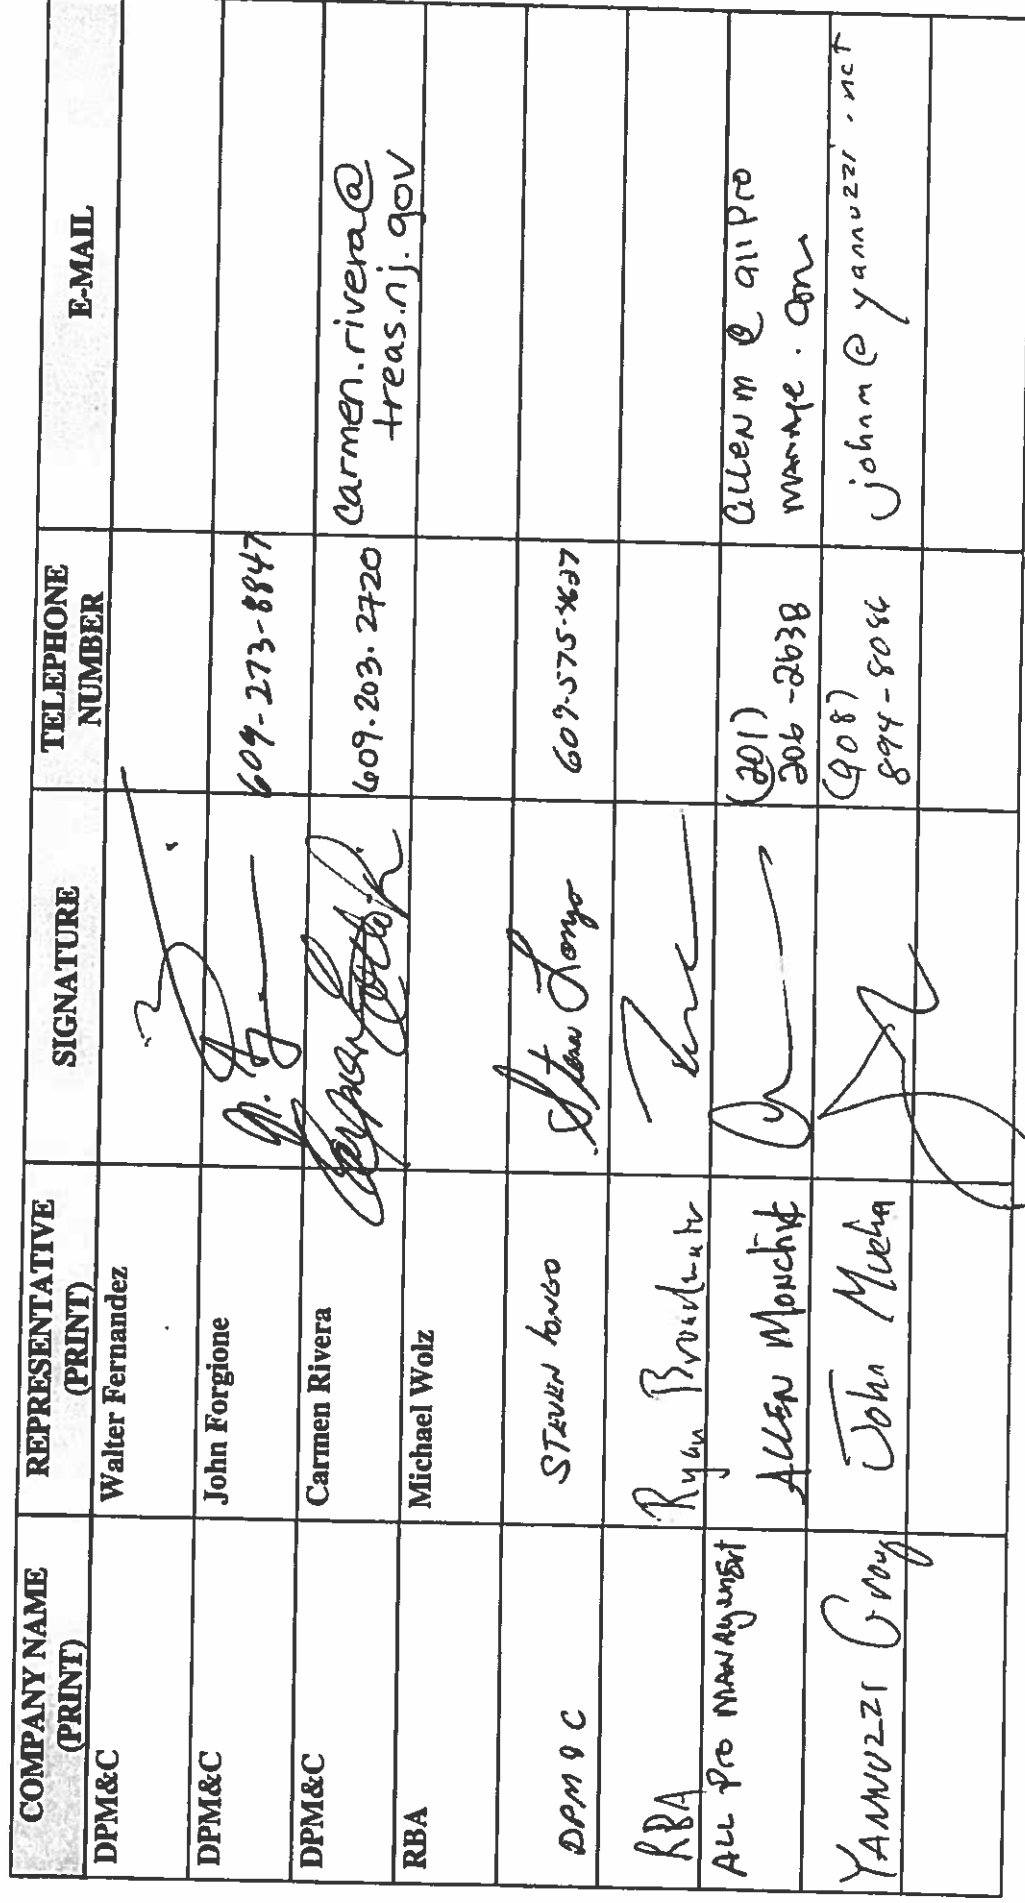 COMPANY NAME
(PRINT)
REPRESENTATIVE
(PRINT)
SIGNATURE
TELEPHONE
NUMBER
E-MAIL
DPM&C
Walter Fernandez
DPM&C
John Forgione
609-273-8847
DPM&C
Carmen Rivera
609.203.2720
carmen.rivera@
treas.nj.gov
RBA
Michael Wolz
DPM & C
STEVEN LONGO
Steven Longo
609-575-
RBA
Ryan
ALL Pro MANAgement
ALLEN
(201)
206-2638
ALLEN M @ allPro
MANAge.com
YANNUZZI Group
John Mucha
(908)
894-8086
johnm@yannuzzi.net